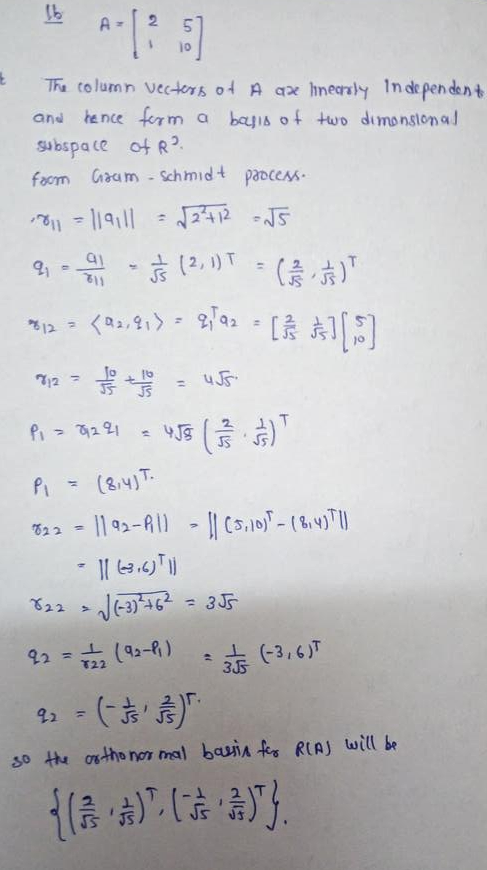 1b
A = [2 5
1 10]
The column vectors of A are linearly Independent
and hence form a basis of two dimensional
subspace of R².
from Gram-Schmidt process.
r₁₁ = ||a₁|| = √2²+1² = √5
q₁ = a₁/r₁₁ = 1/√5 (2,1)ᵀ = (2/√5, 1/√5)ᵀ
r₁₂ = <a₂,q₁> = q₁ᵀa₂ = [2/√5 1/√5][5 10]
r₁₂ = 10/√5 + 10/√5 = 4√5
P₁ = r₁₂q₁ = 4√5 (2/√5, 1/√5)ᵀ
P₁ = (8,4)ᵀ.
r₂₂ = ||a₂-P₁|| = ||(5,10)ᵀ-(8,4)ᵀ||
= ||(-3,6)ᵀ||
r₂₂ = √(-3)²+6² = 3√5
q₂ = 1/r₂₂ (a₂-P₁) = 1/3√5 (-3,6)ᵀ
q₂ = (-1/√5, 2/√5)ᵀ.
so the orthonormal basis for R(A) will be
{(2/√5, 1/√5)ᵀ, (-1/√5, 2/√5)ᵀ}.